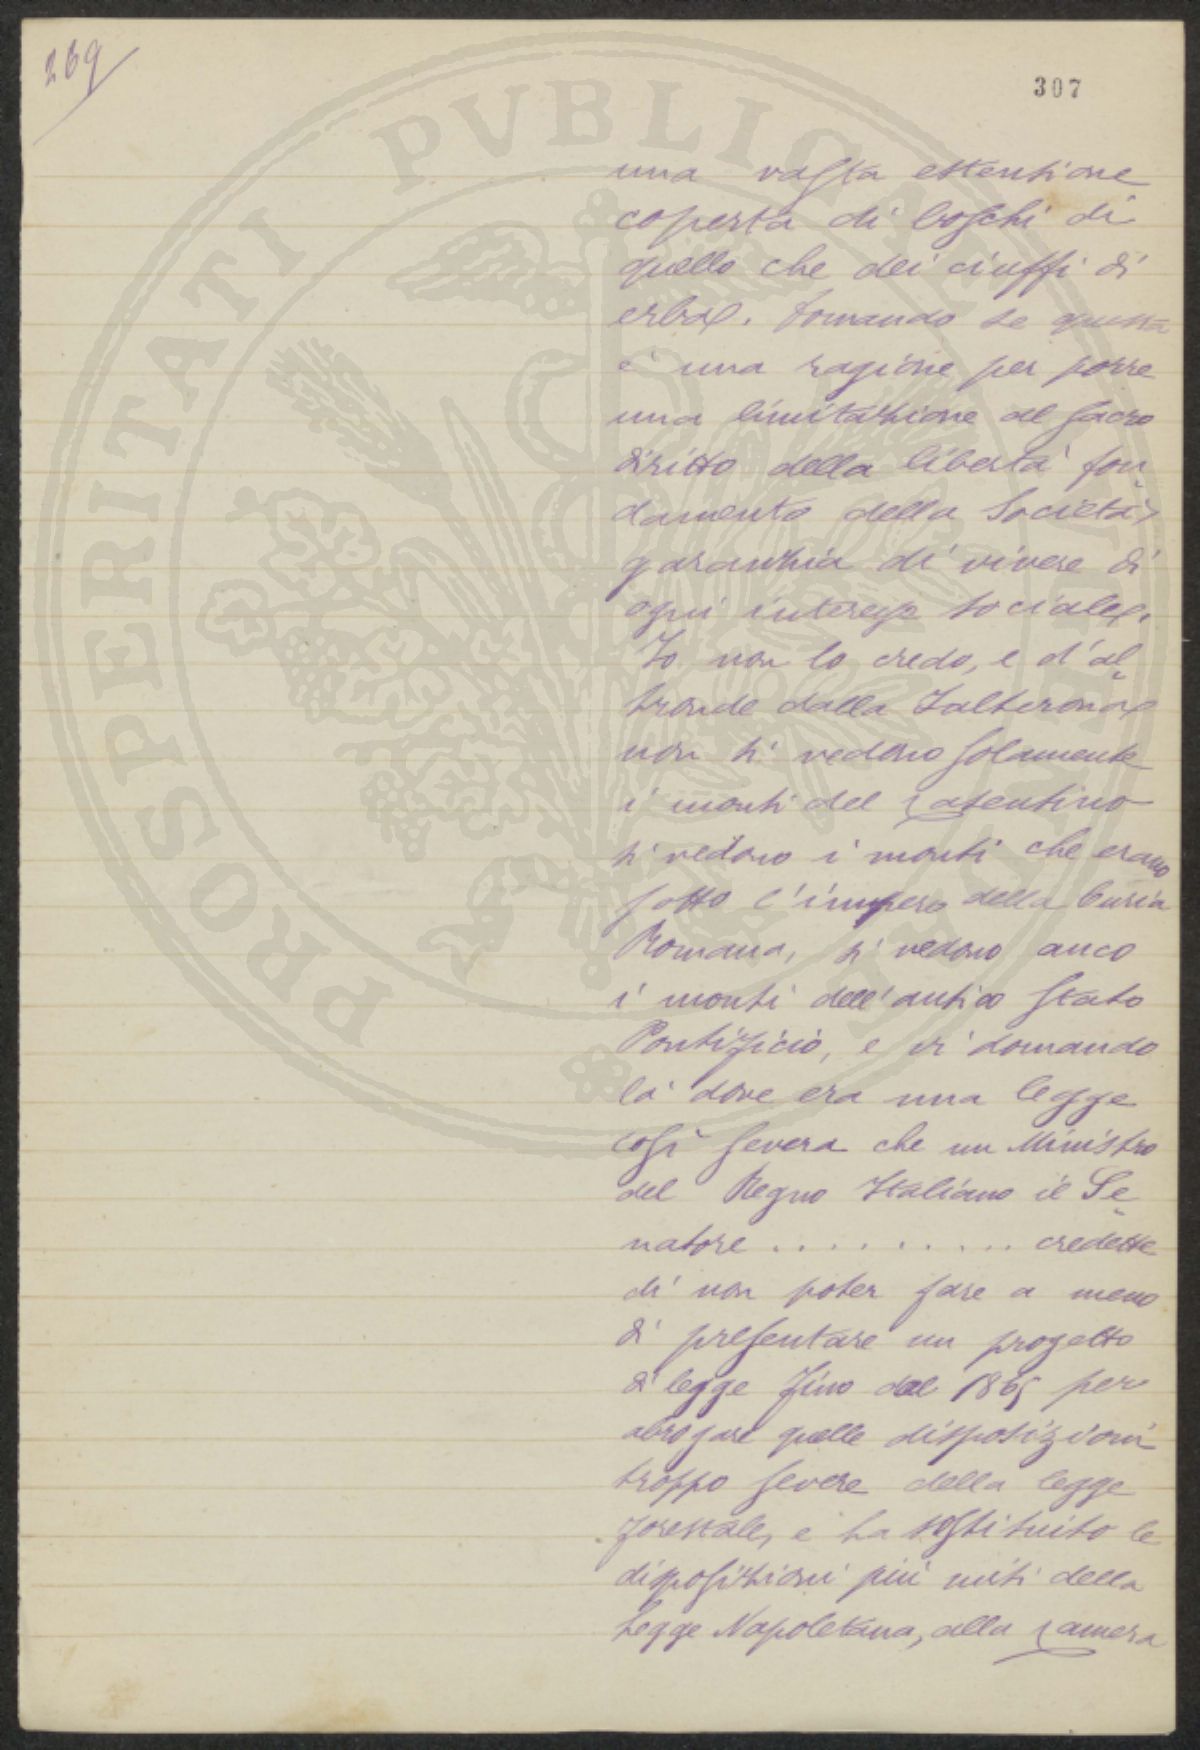 269
307
una vasta estentione
coperta di boschi di
quello che dei ciuffi di
erba. Domando se questa
è una ragione per porre
una limitazione al sacro
diritto della libertà fon
damento della Società,
garanzia di vivere di
ogni interesse sociale.
Io non lo credo, e d'al
tronde dalla Falterona
non si vedono solamente
i monti del Casentino
si vedono i monti che erano
sotto l'impero della Curia
Romana, si vedono anco
i monti dell'antico Stato
Pontificio, e vi domando
là dove era una legge
così severa che un Ministro
del Regno Italiano il Se
natore .......... credette
di non poter fare a meno
di presentare un progetto
di legge fino dal 1865 per
abrogare quelle disposizioni
troppo severe della legge
forestale, e ha sostituito le
disposizioni più miti della
Legge Napoletana, alla Camera
PROSPERITATI PVBLICAE